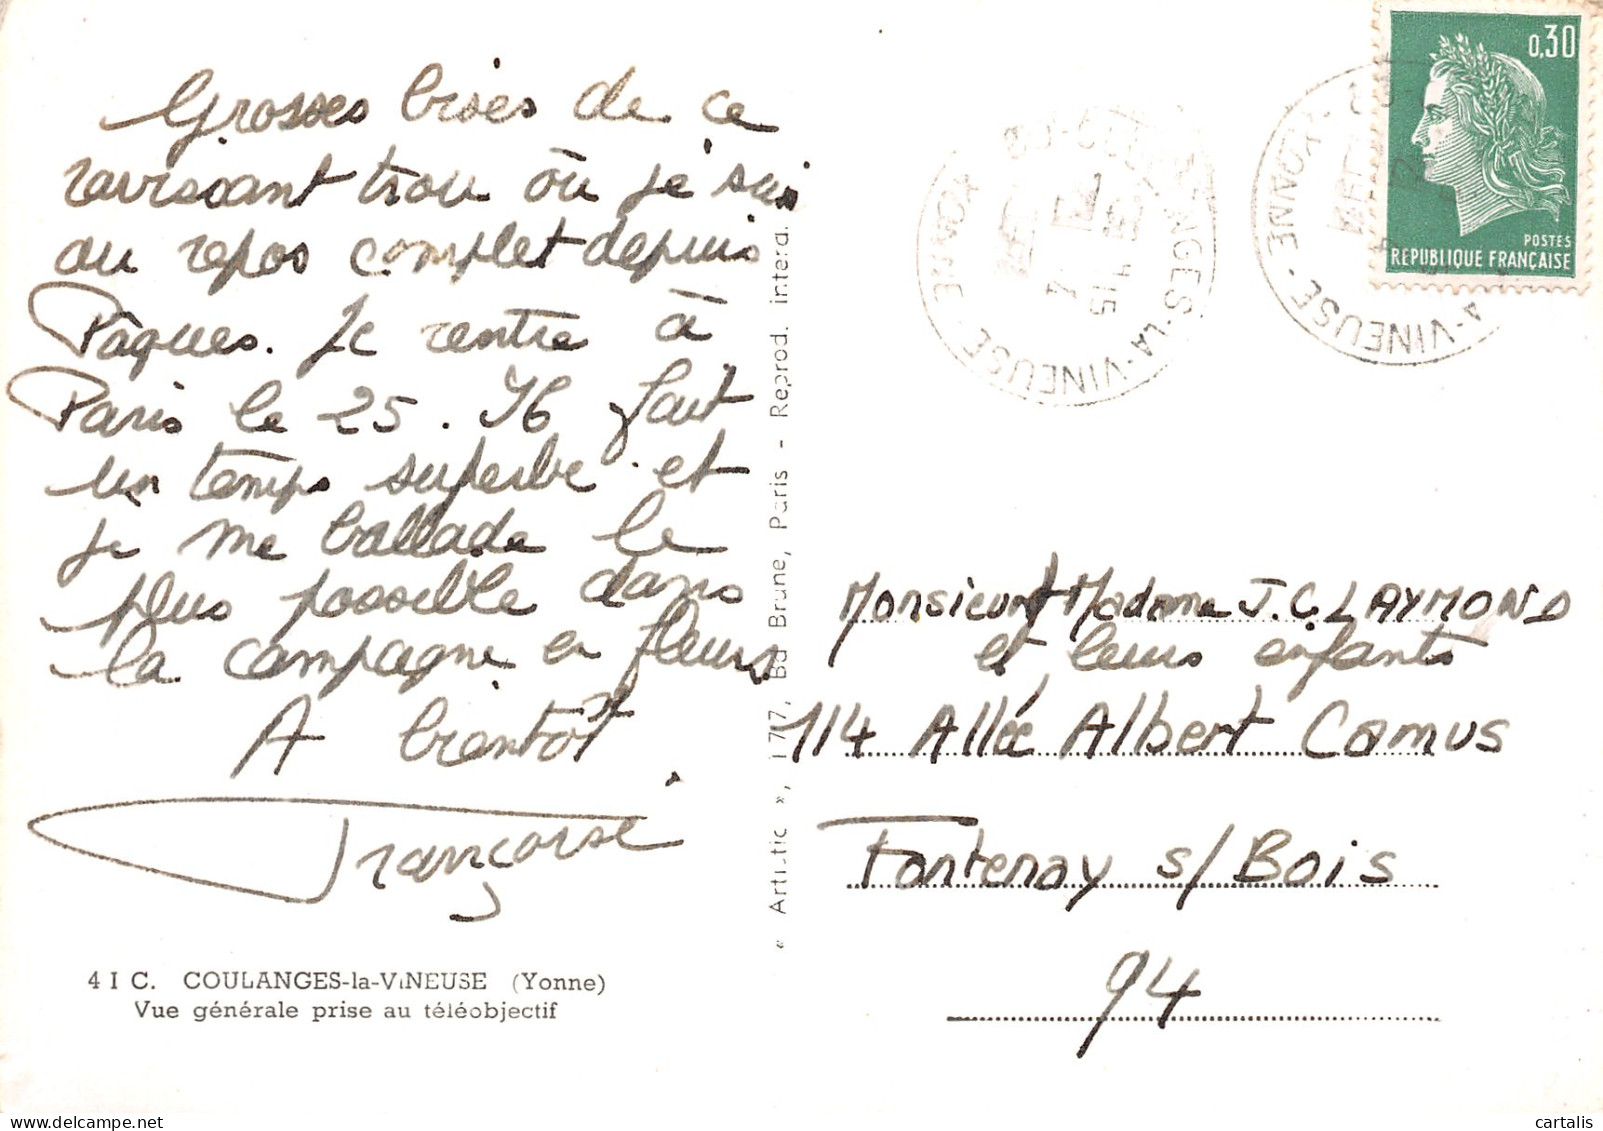 Grosses bises de ce
ravissant trou où je suis
au repos complet depuis
Pâques. Je rentre à
Paris le 25. Il fait
un temps superbe et
je me ballade le
plus possible dans
la campagne en fleurs
A bientôt
Françoise
4 I C. COULANGES-la-VINEUSE (Yonne)
Vue générale prise au téléobjectif
« Artistic », 177, Bd Brune, Paris - Reprod. interd.
COULANGES-LA-VINEUSE - YONNE
A-VINEUSE - YONNE
0,30
POSTES
REPUBLIQUE FRANÇAISE
Monsieur Madame J.C. LAYMOND
et leurs enfants
114 Allée Albert Camus
Fontenay s/Bois
94
cartalis